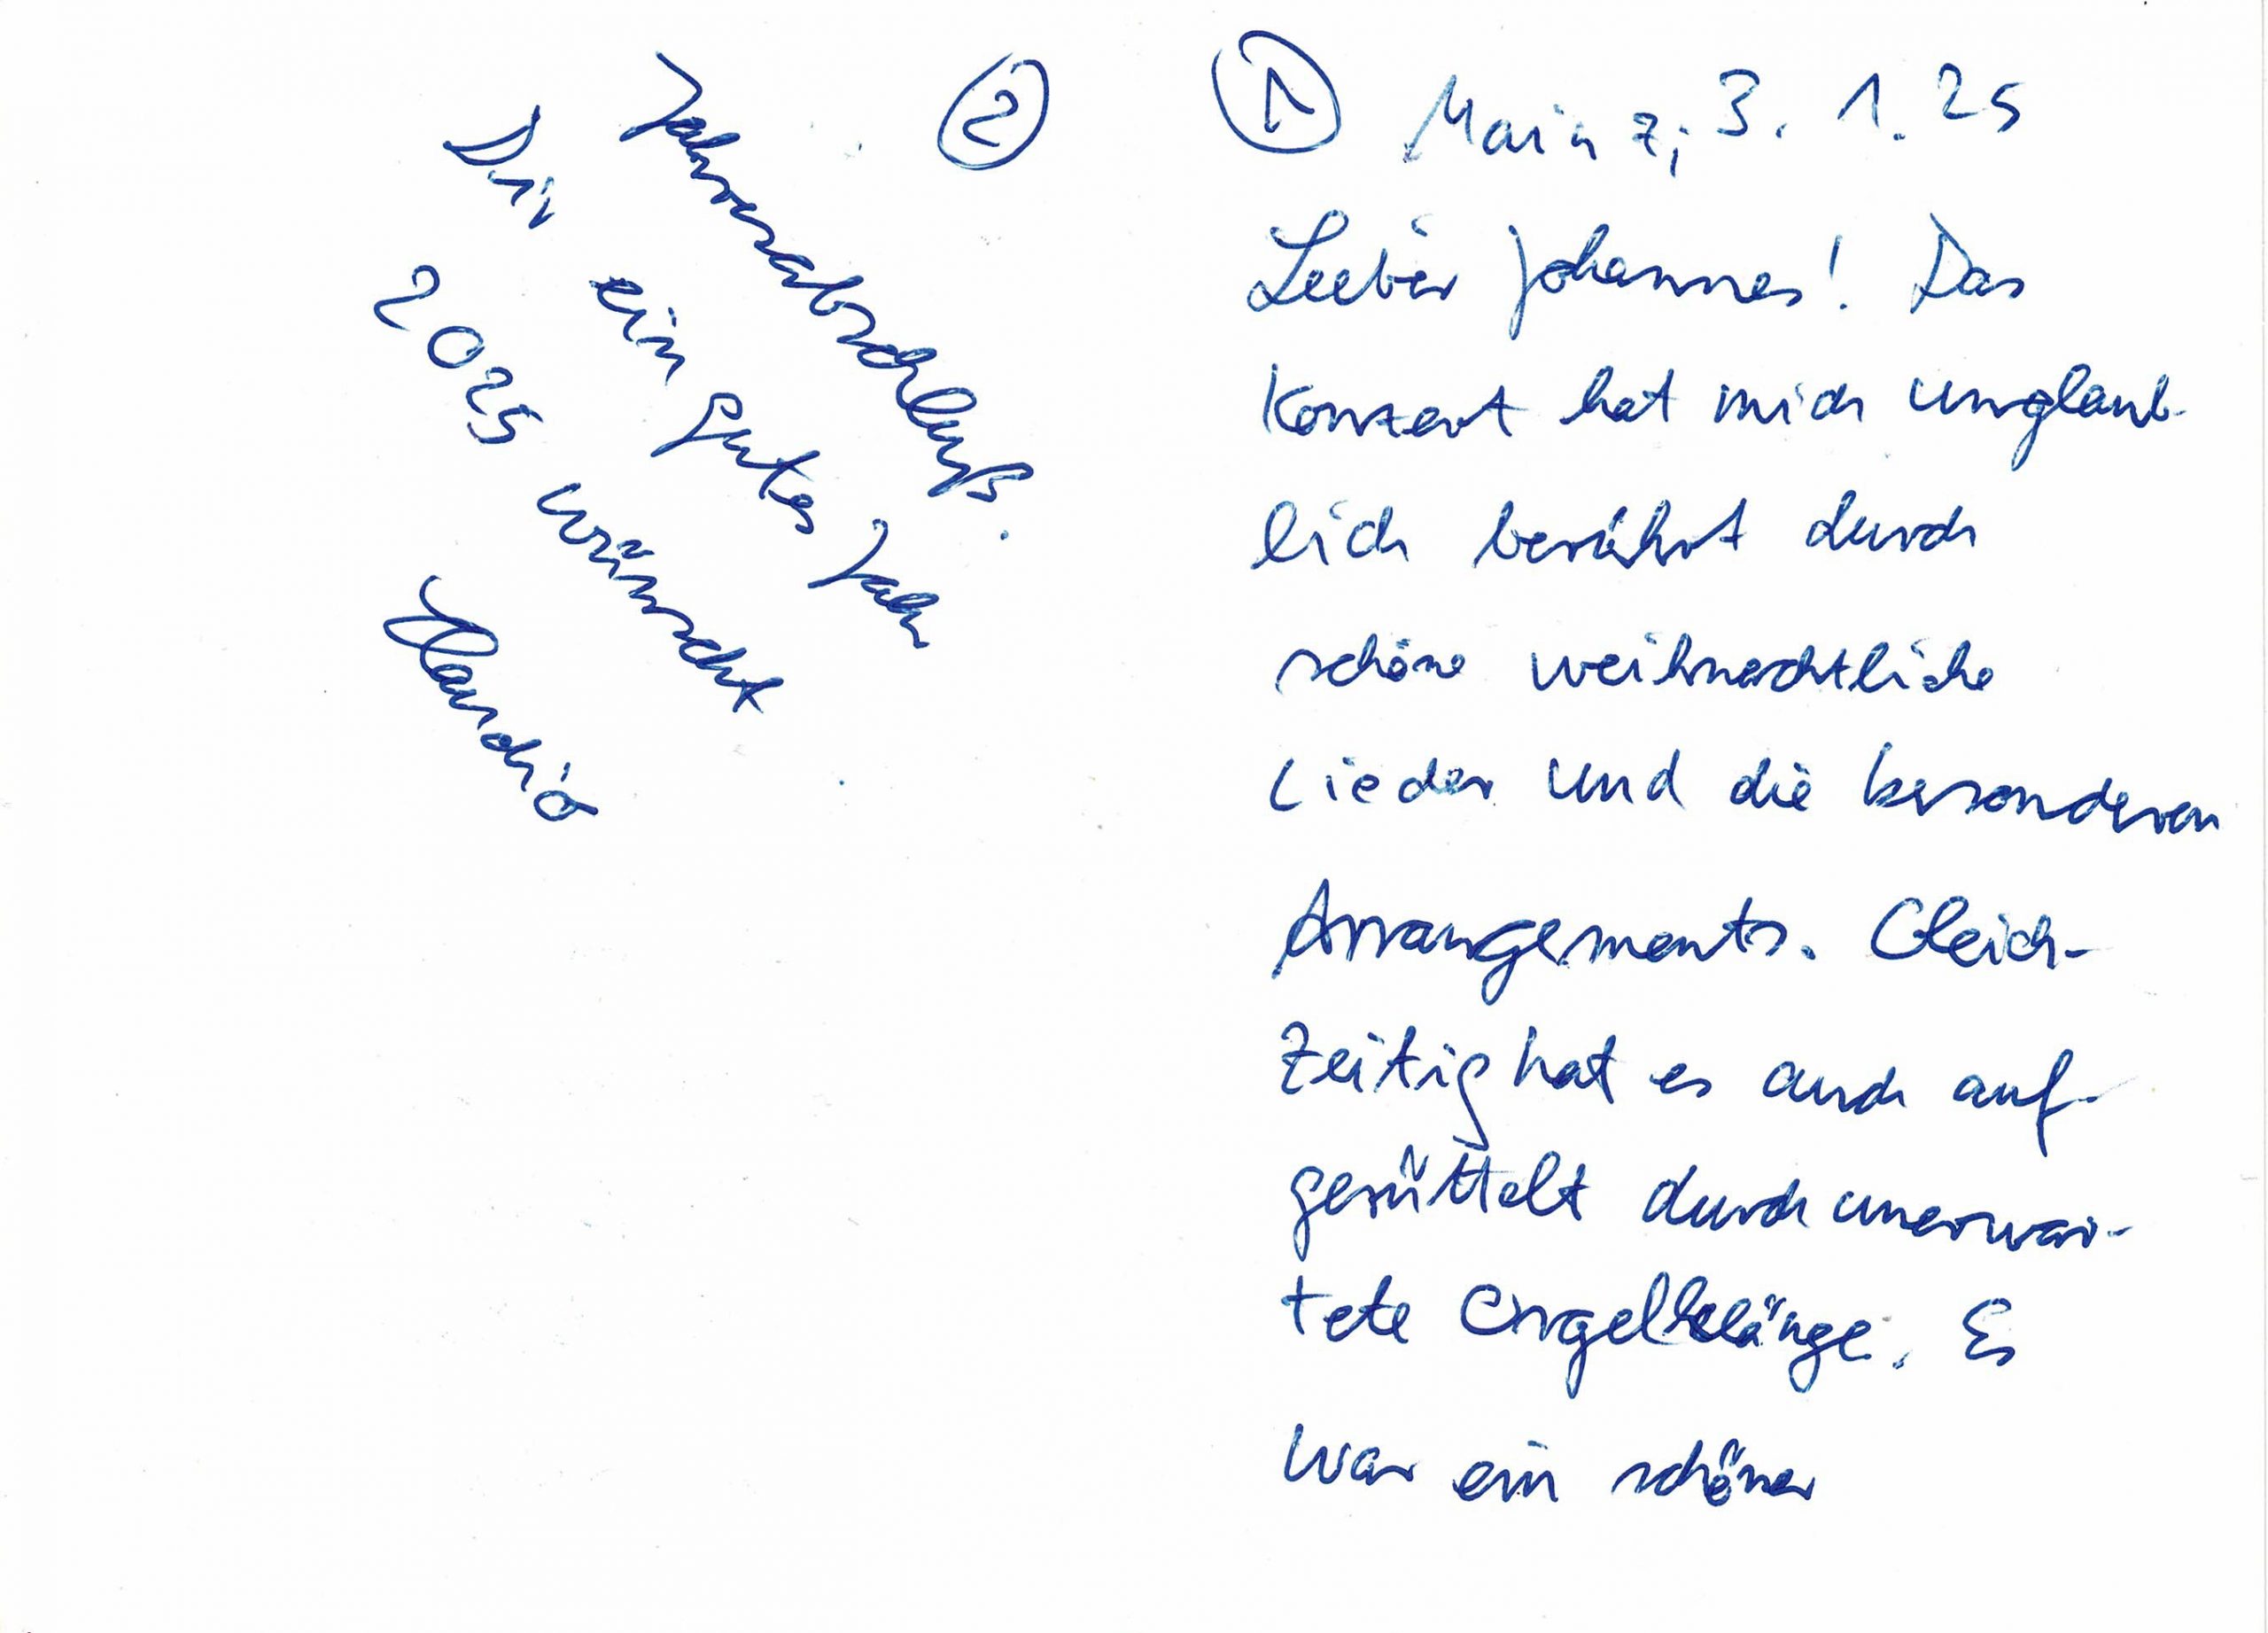 ①
Mainz, 3. 1. 25
Lieber Johannes! Das
Konzert hat mich unglaub-
lich berührt durch
schöne weihnachtliche
Lieder und die besonderen
Arrangements. Gleich-
zeitig hat es auch auf-
gerüttelt durch unerwar-
tete Orgelklänge. Es
war ein schöner
②
Jahresabschluß.
Dir ein gutes Jahr
2025 wünscht